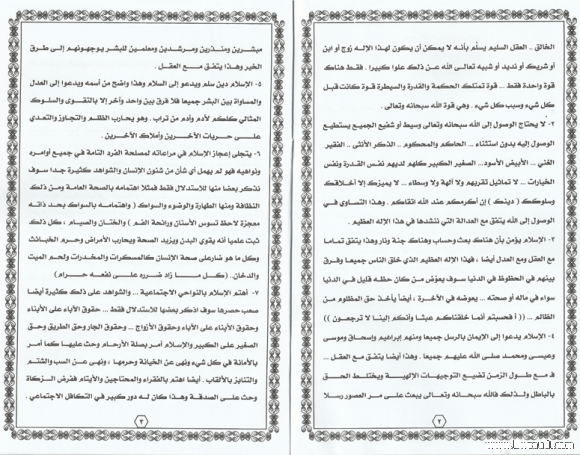 الخالق .. العقل السليم يسلّم بأنه لا يمكن أن يكون لهذا الإله زوج أو ابن
أو شريك أو نديد أو شبيه تعالى الله عن ذلك علوا كبيرا . فقط هناك
قوة واحدة فقط ... قوة تمتلك الحكمة والقدرة والسيطرة قوة كانت قبل
كل شيء وسبب كل شيء . وهي قوة الله سبحانه وتعالى .
٢- لا يحتاج الوصول إلى الله سبحانه وتعالى وسيط أو شفيع الجميع يستطيع
الوصول إليه بدون استثناء ... الحاكم والمحكوم .. الذكر الأنثى .. الفقير
الغني ... الأبيض الأسود... الصغير الكبير كلهم لديهم نفس القدرة ونفس
الخيارات ... لا تماثيل تقربهم ولا آلهة ولا وسطاء ... لا يميزك إلا أخلاقك
وسلوكك ( دينك ) إن أكرمكم عند الله اتقاكم . وهذا التساوى في
الوصول إلى الله يتفق مع العدالة التي ننشدها في هذا الإله العظيم .
٣- الإسلام يؤمن بأن هناك بعث وحساب وهناك جنة ونار وهذا يتفق تماما
مع العقل ومع العدل أيضا ، فهذا الإله العظيم الذي خلق الناس جميعا وفرق
بينهم في الحظوظ في الدنيا سوف يعوّض من كان حظه قليل في الدنيا
سواء في ماله أو صحته ... يعوضه في الآخرة ، أيضا يأخذ حق المظلوم من
الظالم ... (( أفحسبتم أنما خلقناكم عبثا وأنكم إلينا لا ترجعون ))
٤- الإسلام يدعوا إلى الإيمان بالرسل جميعا ومنهم إبراهيم وإسحاق وموسى
وعيسى ومحمد صلى الله عليهم جميعا . وهذا أيضا يتفق مع العقل ...
فـ مع طول الزمن تضيع التوجيهات الإلهية ويختلط الحق
بالباطل ولذلك فالله سبحانه وتعالى يبعث على مر العصور رسلا
٢
مبشرين ومنذرين ومرشدين ومعلمين للبشر يوجهونهم إلى طرق
الخير وهذا يتفق مع العقل .
٥- الإسلام دين سلم ويدعوا إلى السلام وهذا واضح من أسمه ويدعوا إلى العدل
والمساواة بين البشر جميعا فلا فرق بين واحد وآخر إلا بالتقوى والسلوك
المثالي كلكم لآدم وآدم من تراب . وهو يحارب الظلم والتجاوز والتعدي
على حريات الآخرين وأملاك الآخرين .
٦- يتجلى إعجاز الإسلام في مراعاته لمصلحة الفرد التامة في جميع أوامره
ونواهيه فهو لم يهمل أي شأن من شئون الإنسان والشواهد كثيرة جدا سوف
نذكر بعضا منها للاستدلال فقط فمثلا اهتمامه بالصحة العامة ومن ذلك
النظافة ومنها الطهارة والوضوء والسواك ( واهتمامه بالسواك بحد ذاته
معجزة لاحظ تسوس الأسنان ورائحة الفم ) والختان والصيام ، كل ذلك
ثبت علميا أنه يقوي البدن ويزيد الصحة ويحارب الأمراض وحرم الخبائث
وكل ما هو ضار على صحة الإنسان كالمسكرات والمخدرات ولحم الميت
والدخان. ( كل ما زاد ضرره على نفعه حرام )
٧- أهتم الإسلام بالنواحي الاجتماعية ... والشواهد على ذلك كثيرة أيضا
صعب حصرها سوف أذكر بعضها للاستدلال فقط ... حقوق الآباء على الأبناء
وحقوق الأبناء على الآباء وحقوق الأزواج ... وحقوق الجار وحق الطريق وحق
الصغير على الكبير والإسلام أمر بصلة الأرحام وحث عليها كما أمر
بالأمانة في كل شيء ونهى عن الخيانة وحرمها ، ونهى عن السب والشتم
والتنابز بالألقاب . أيضا اهتم بالفقراء والمحتاجين والأيتام ففرض الزكاة
وحث على الصدقة وهذا كان له دور كبير في التكافل الاجتماعي .
٣